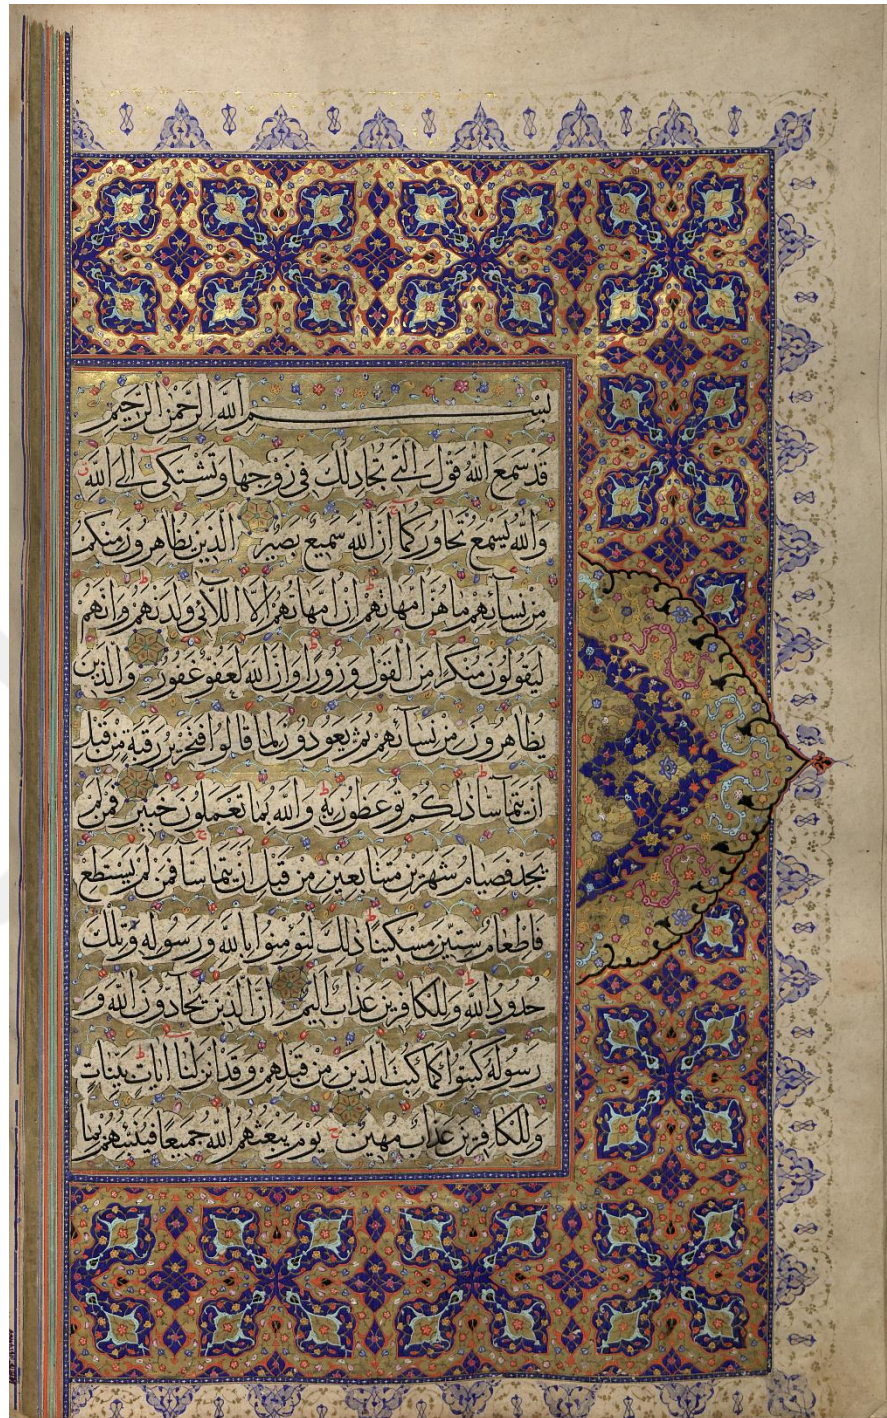 بِسْمِ اللّٰهِ الرَّحْمٰنِ الرَّحِيمِ
قَدْ سَمِعَ اللّٰهُ قَوْلَ الَّتِي تُجَادِلُكَ فِي زَوْجِهَا وَتَشْتَكِي إِلَى اللّٰهِ
وَاللّٰهُ يَسْمَعُ تَحَاوُرَكُمَا إِنَّ اللّٰهَ سَمِيعٌ بَصِيرٌ الَّذِينَ يُظَاهِرُونَ مِنْكُمْ
مِنْ نِسَآئِهِمْ مَا هُنَّ أُمَّهَاتِهِمْ إِنْ أُمَّهَاتُهُمْ إِلَّا اللَّآئِي وَلَدْنَهُمْ وَإِنَّهُمْ
لَيَقُولُونَ مُنْكَرًا مِنَ الْقَوْلِ وَزُورًا وَإِنَّ اللّٰهَ لَعَفُوٌّ غَفُورٌ وَالَّذِينَ
يُظَاهِرُونَ مِنْ نِسَآئِهِمْ ثُمَّ يَعُودُونَ لِمَا قَالُوا فَتَحْرِيرُ رَقَبَةٍ مِنْ قَبْلِ
أَنْ يَتَمَآسَّا ذٰلِكُمْ تُوعَظُونَ بِهِ وَاللّٰهُ بِمَا تَعْمَلُونَ خَبِيرٌ فَمَنْ لَمْ
يَجِدْ فَصِيَامُ شَهْرَيْنِ مُتَتَابِعَيْنِ مِنْ قَبْلِ أَنْ يَتَمَآسَّا فَمَنْ لَمْ يَسْتَطِعْ
فَإِطْعَامُ سِتِّينَ مِسْكِينًا ذٰلِكَ لِتُؤْمِنُوا بِاللّٰهِ وَرَسُولِهِ وَتِلْكَ
حُدُودُ اللّٰهِ وَلِلْكَافِرِينَ عَذَابٌ أَلِيمٌ إِنَّ الَّذِينَ يُحَآدُّونَ اللّٰهَ وَ
رَسُولَهُ كُبِتُوا كَمَا كُبِتَ الَّذِينَ مِنْ قَبْلِهِمْ وَقَدْ أَنْزَلْنَا آيَاتٍ بَيِّنَاتٍ
وَلِلْكَافِرِينَ عَذَابٌ مُهِينٌ يَوْمَ يَبْعَثُهُمُ اللّٰهُ جَمِيعًا فَيُنَبِّئُهُمْ بِمَا